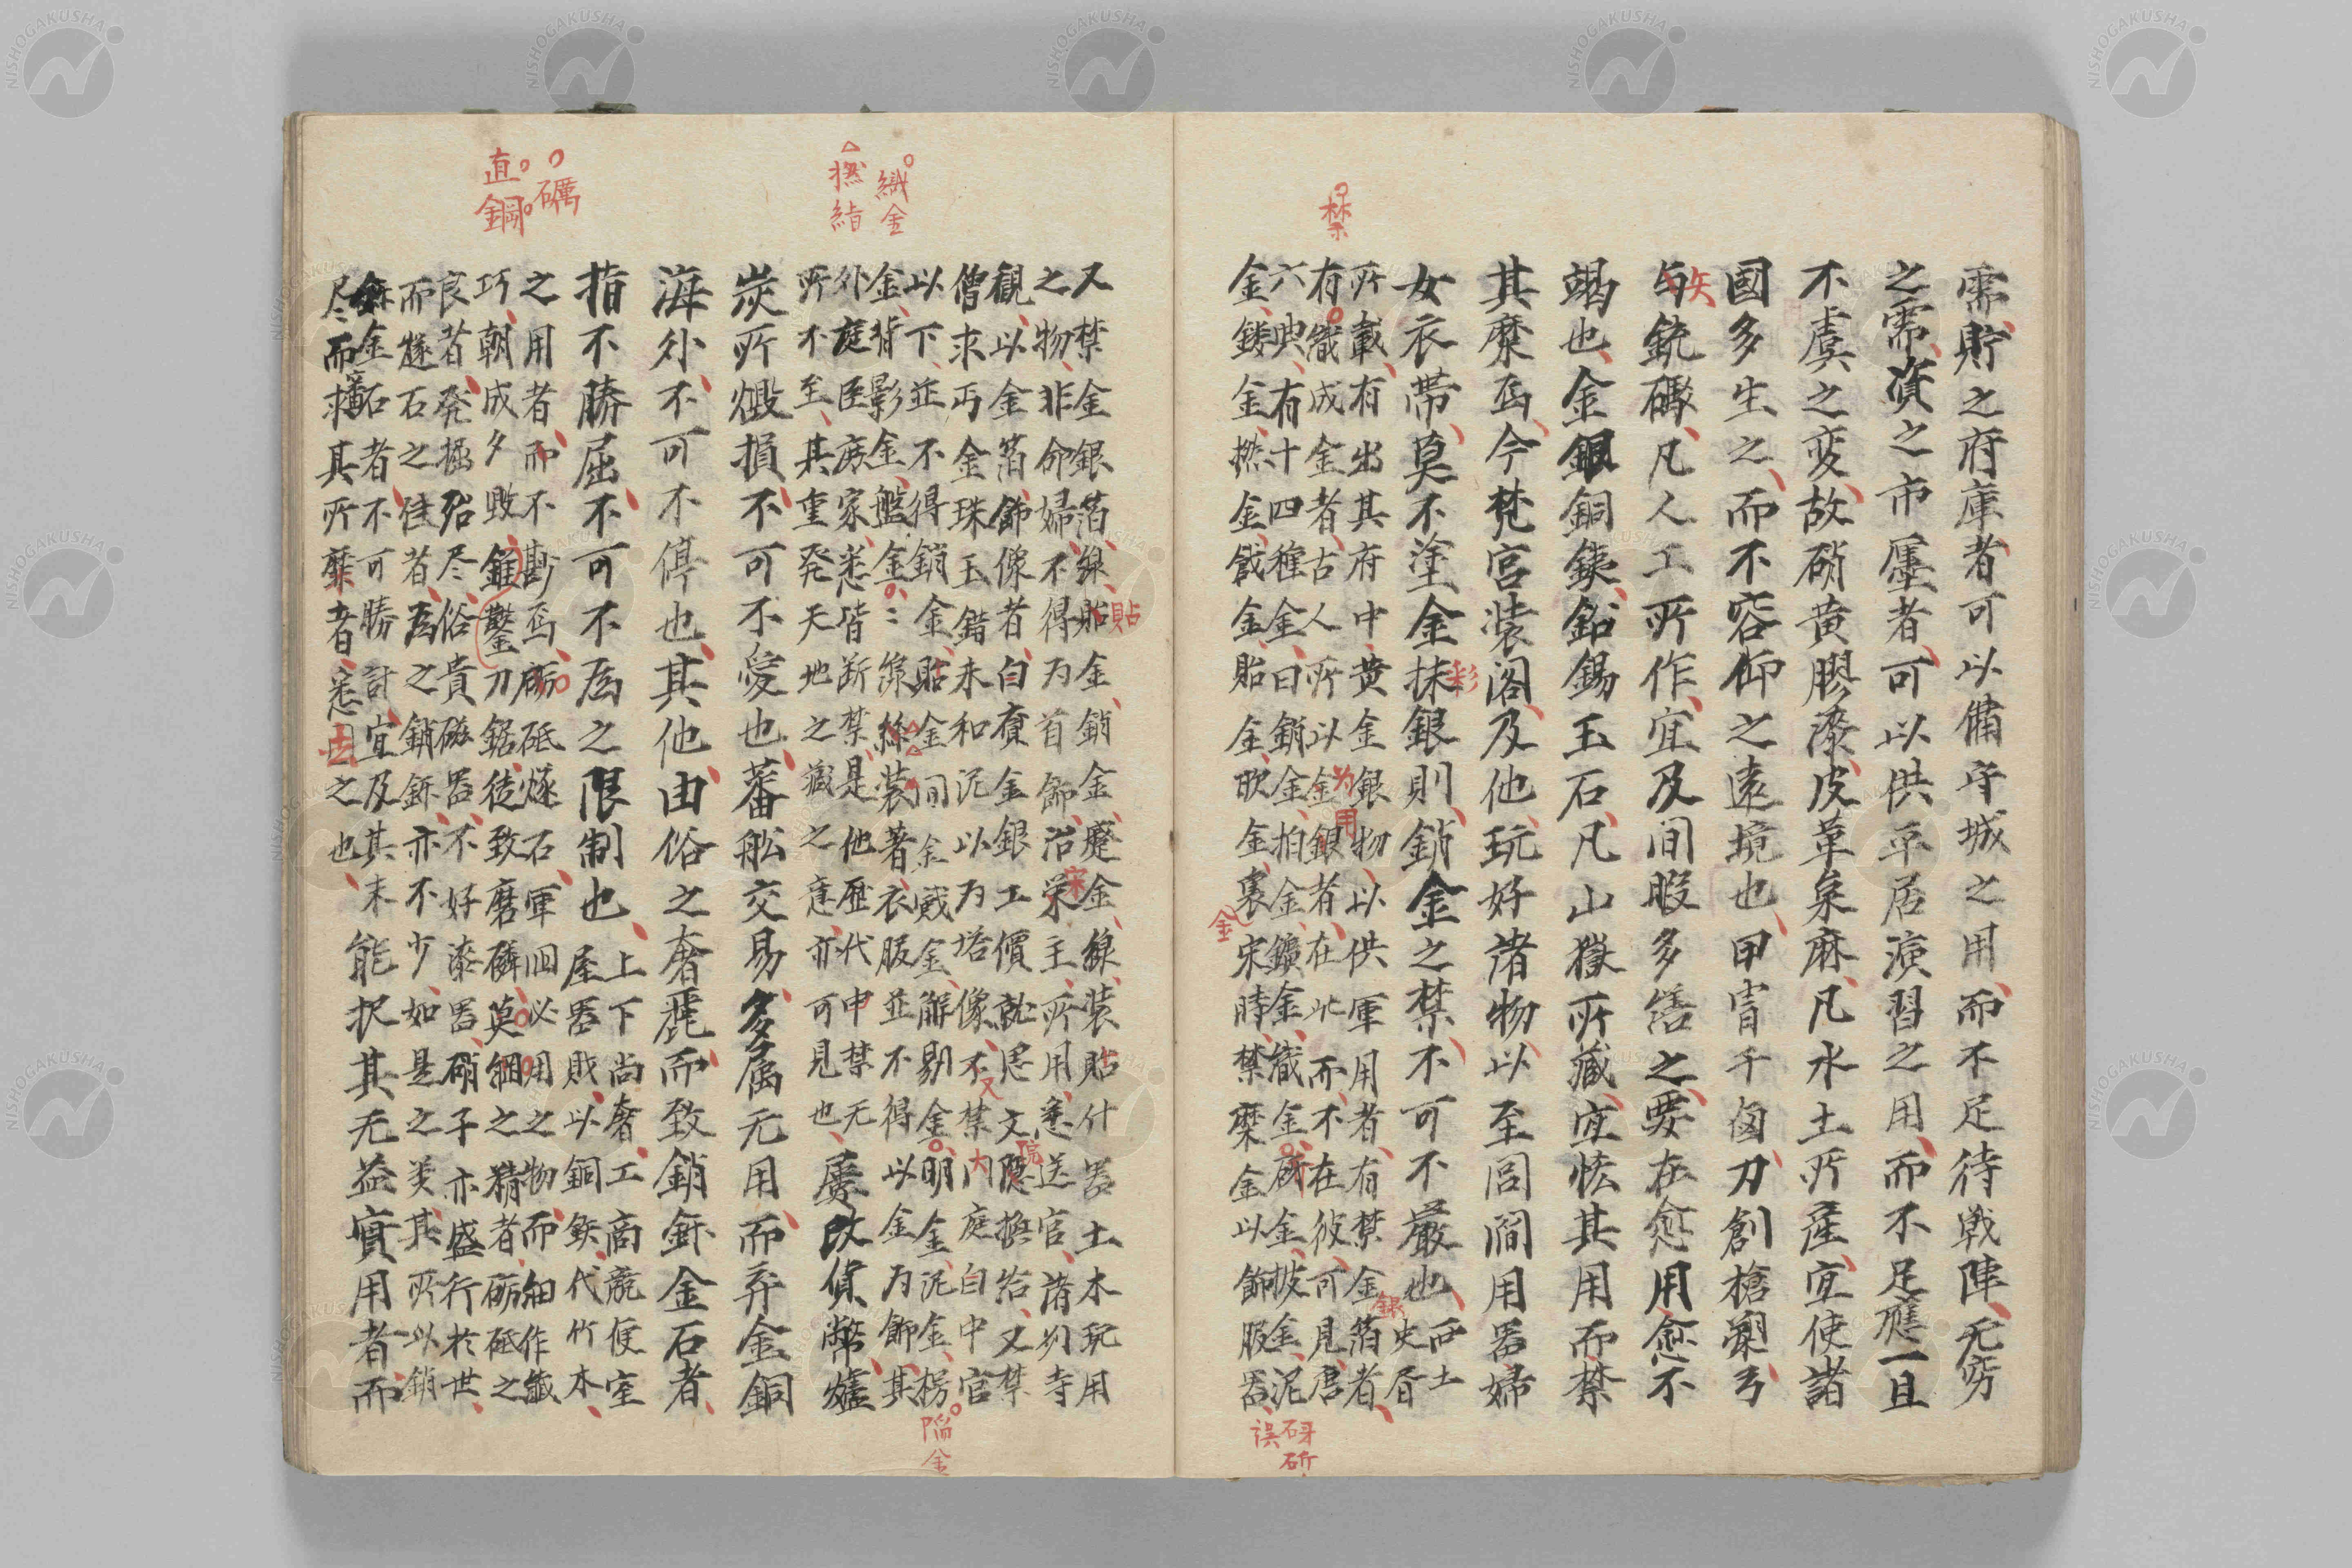 需貯之府庫者可以備守城之用而不足待戦陣无窮
之需資之市廛者可以供平居演習之用而不足應一旦
不虞之変故硝黄膠漆皮革枲麻凡水土所産宜使諸
國多生之而不容仰之遠境也甲冑干囟刀創槍槊弓
矢
与銃礮凡人工所作宜及间暇多繕之要在愈用愈不
竭也金銀銅銕鉛錫玉石凡山獄所藏宜恡其用而禁
其糜焉今梵宮装阁及他玩好諸物以至闾阎用器婦
女衣帯莫不塗金抹銀則銷金之禁不可不嚴也西土
彩
史胥
銀
禁
所載有出其府中黄金銀物以供軍用者有禁金箔者
有織成金者古人所以金銀者在此而不在彼可見唐
为用
六典有十四種金曰銷金拍金鍍金織金砑金披金泥
金鏤金金撚金戧金貼金欧金裏宋時禁糜金以飾服器
金
砑
誤 斫
又禁金銀箔線貼金銷金蹙金線装貼什器土木玩用
貼
之物非命婦不得为首飾治栄主所用悉送官諸州寺
宋
觀以金箔飾像者自賫金銀工價就思文應撫给又禁
院
僧求丐金珠玉錯末和泥以为塔像不禁门庭白中官
又
大
以下並不得銷金貼金间金戯金解剔金明金泥金楞
陷金
金背影金盤金〻線絲装著衣服並不得以金为飾其
織金
撚絲
外庭臣庶家悉皆断禁是他歴代申禁无
所不至其重発天地之藏之意亦可見也屢改貨幣爐
炭所燬損不可不愛也蕃舩交易多属无用而弃金銅
海外不可不停也其他由俗之奢麗而致銷鉼金石者
指不勝屈不可不為之限制也上下尚奢工商競便室
屋器戝以銅鉄代竹木
之用者而不尠焉砺砥燧石軍囬必用之物而細作器
礪
巧朝成夕毀錐鑿刀鋸徒致磨磷莫細之精者砺砥之
直鋼
良者発掘殆尽俗貴磁器不好漆器硝子亦盛行於世
而燧石之佳者為之銷鉼亦不少如是之类其所以銷
鉼金石者不可勝計宜及其未能択其无益實用者而
尽而求其所糜者悉因之也
去